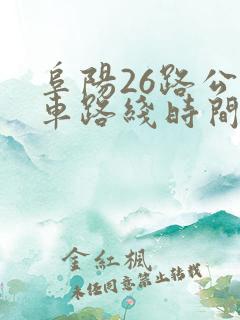 阜陽26路公
車路綫時間
金紅楓
未经同意禁止转载